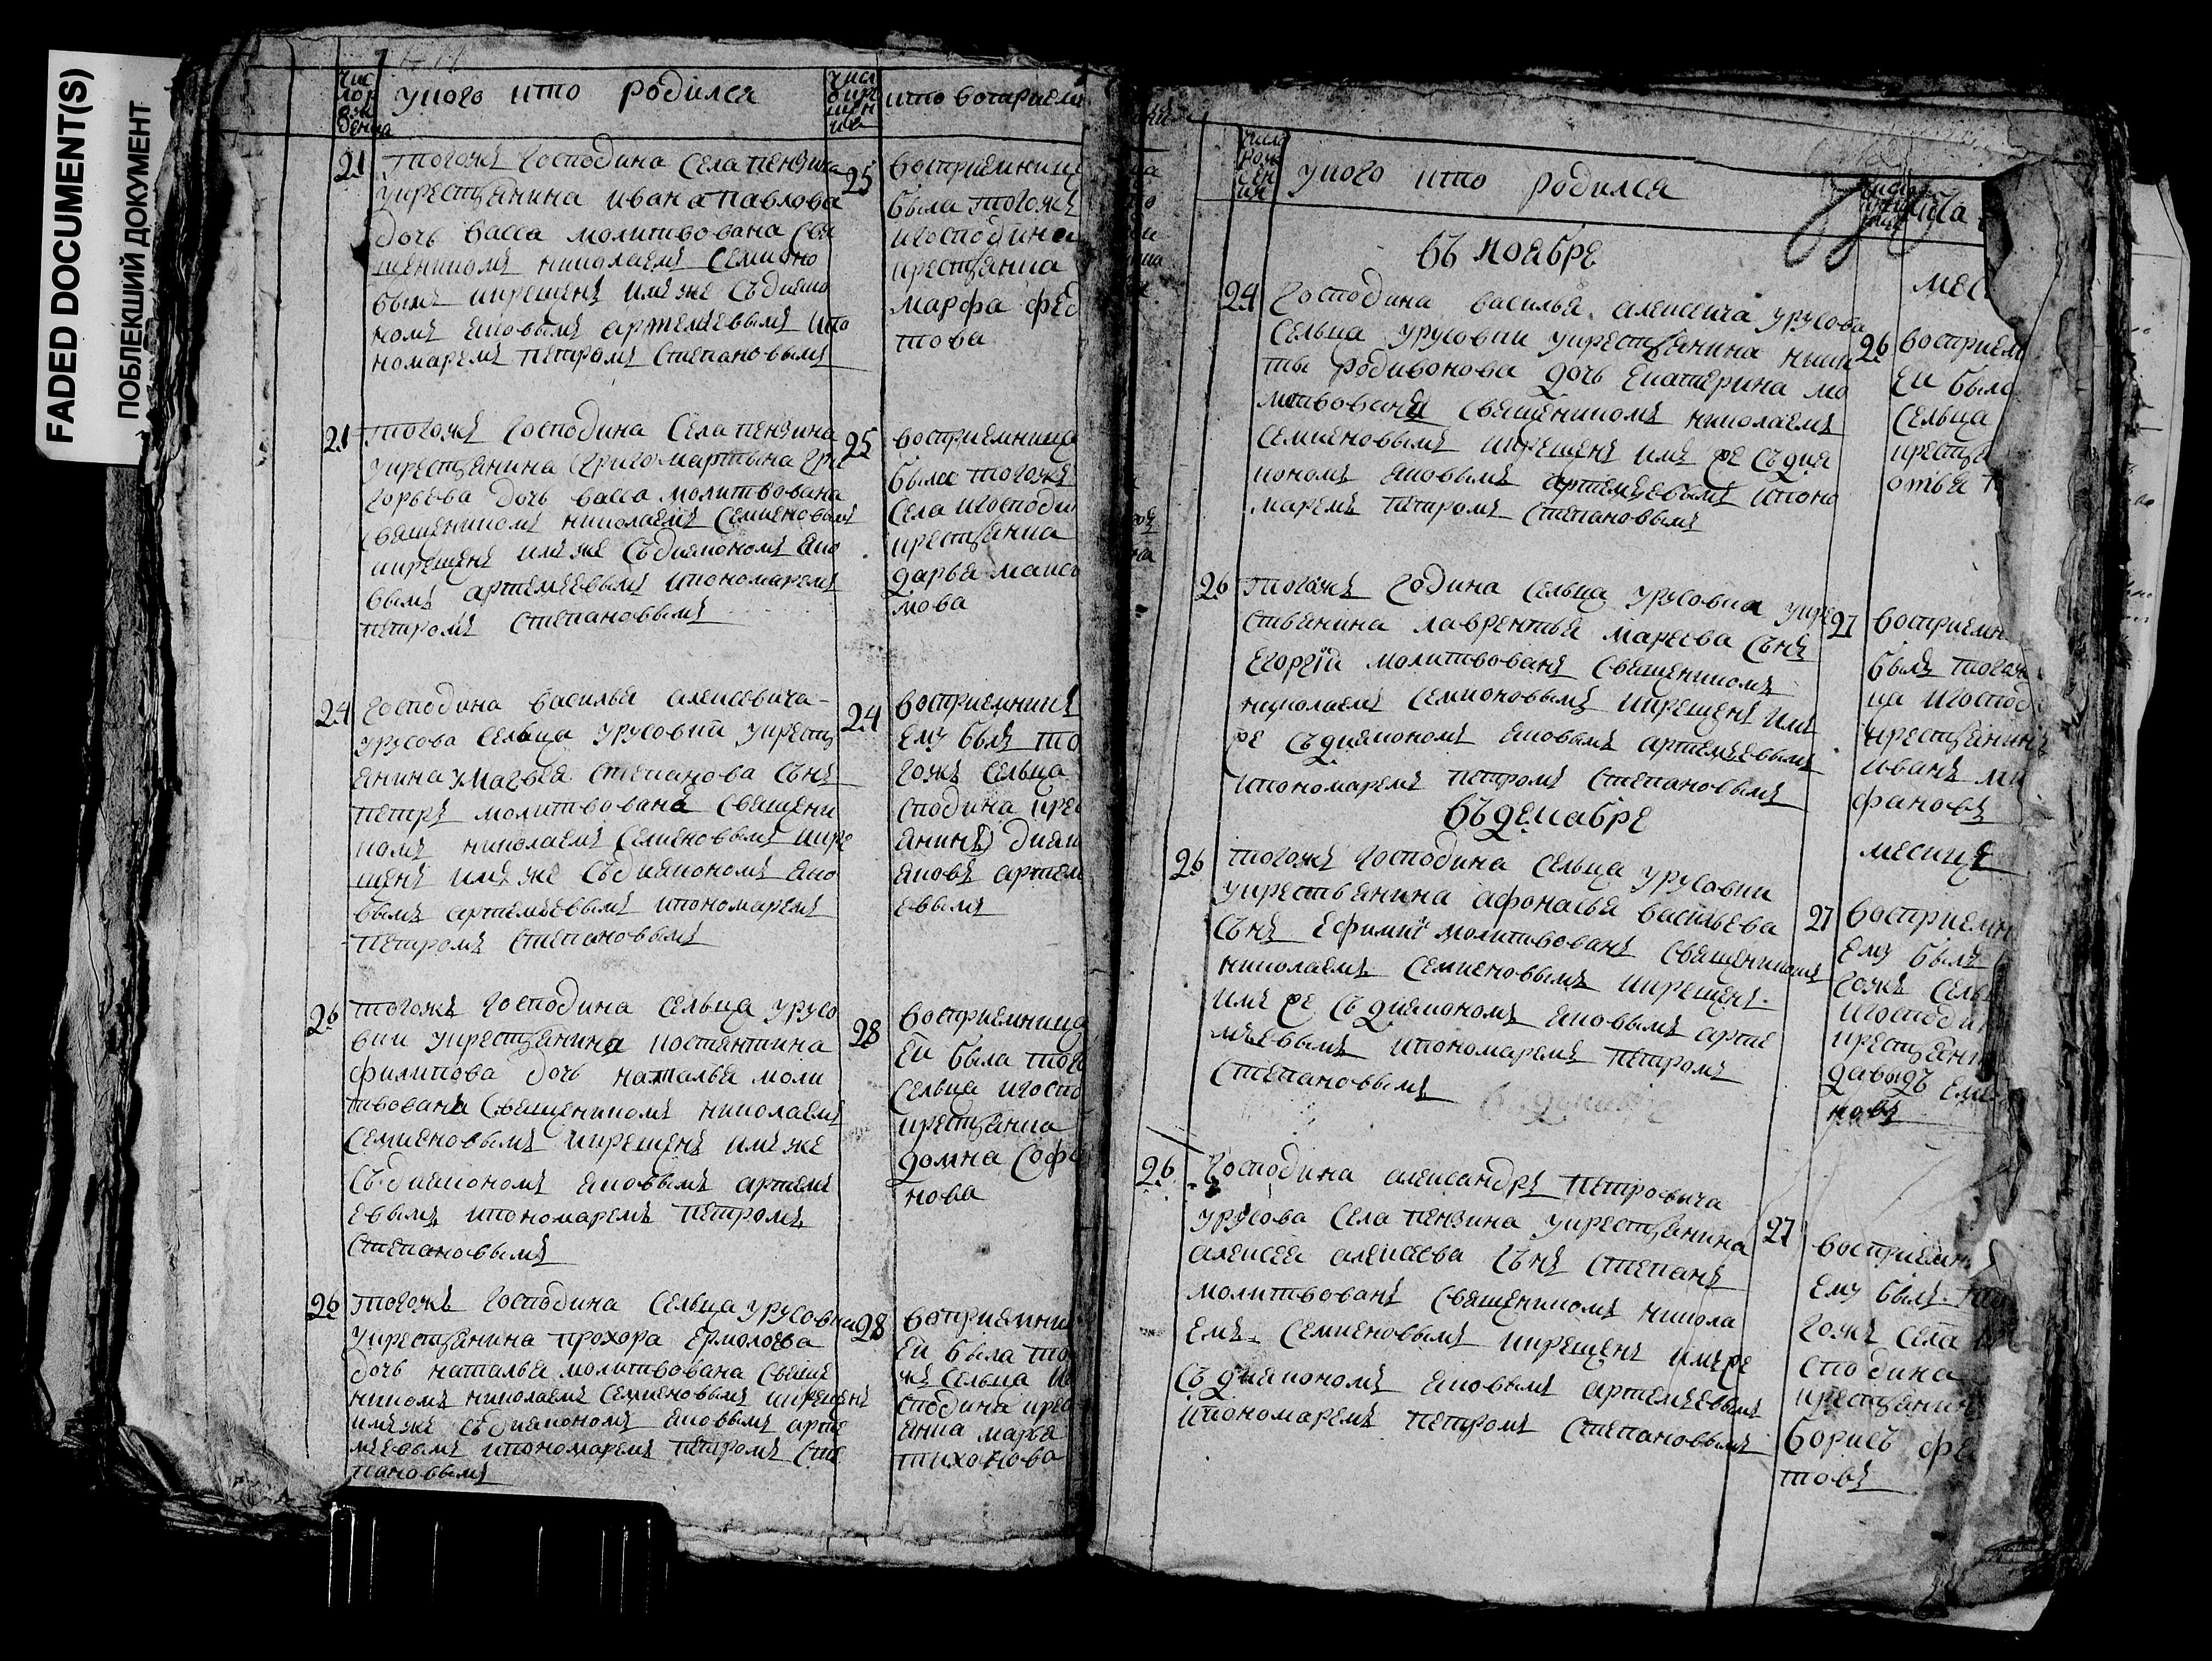 FADED DOCUMENT(S)
ПОБЛЕКШИЙ ДОКУМЕНТ
чис
лор
ож
дения
укого кто родился
числ
окре
щен
ия
кто восприем
21
тогожъ господина села пензина
укрестьянина ивана павлова
дочь васса молитвована свя
щенникомъ николаемъ семионо
вымъ икрещенъ имъ же съдиако
номъ яковымъ артемьевымъ ипо
номаремъ петромъ степановымъ
25
восприемнице
была тогожъ
игосподина
крестьянка
марфа фед
това
21
тогожъ господина села пензина
укрестьянина григо мартына гри
горьева дочь васса молитвована
священникомъ николаемъ семионовымъ
икрещенъ имъ же съдиакономъ яко
вымъ артемьевымъ ипономаремъ
петромъ степановымъ
25
восприемница
была тогожъ
села игосподи
крестьянка
дарья макси
мова
24
господина василья алексевича
урусова сельца урусовки укресть
янина умагвея степанова сынъ
петръ молитвована священи
комъ николаемъ семионовымъ икре
щенъ имъ же съдиакономъ яко
вымъ артемьевымъ ипономаремъ
петромъ степановымъ
24
восприемникъ
ему былъ то
гожъ сельца
сподина крес
янинъ диак
яковъ артем
евымъ
26
тогожъ господина сельца урусо
вки укрестьянина костянтина
филипова дочь наталья моли
твована священникомъ николаемъ
семионовымъ икрещенъ имъ же
съдиакономъ яковымъ артемь
евымъ ипономаремъ петромъ
степановымъ
28
восприемница
ей была того
сельца игоспо
крестьянка
домна соф
нова
26
тогожъ господина сельца урусовки
укрестьянина прохора ермолоева
дочь наталья молитвована свяще
никомъ николаемъ семионовымъ икрещенъ
имъ же съдиакономъ яковымъ арте
мьевымъ ипономаремъ петромъ сте
пановымъ
28
воприемни
ей была то
жъ сельца и
сподина крес
янка марья
тихонова
числ
рож
ден
ия
укого кто родился
въ ноябре
мес
24
господина василья алексеича урусова
сельца урусовки укрестьянина ники
ты родивонова дочь екатерина мо
литвованъ священикомъ николаемъ
семионовымъ икрещенъ имъ же съдиа
кономъ яковымъ артемьевымъ ипоно
маремъ петромъ степановымъ
26
восприем
ей была
сельца
крестья
26
тогожъ година сельца урусовки укре
стьянина лаврентья мареева сынъ
егоргій молитвованъ священикомъ
николаемъ семионовымъ икрещенъ им
же съдиакономъ яковымъ артемьевымъ
ипономаремъ петромъ степановымъ
27
восприемн
былъ тогож
ца игоспод
крестьянинъ
иванъ ми
фановъ
въ декабре
месице
26
тогожъ господина сельца урусовки
укрестьянина афонасья васильева
сынъ ефимий молитвованъ священикомъ
николаемъ семионовымъ икрещенъ
имъ же съ диакономъ яковымъ арте
мьевымъ ипономаремъ петромъ
степановымъ
27
восприемн
ему былъ
гожъ сель
игосподи
крестьяни
давыдъ еме
новъ
26
господина александръ петровича
урусова села пензина укрестьянина
алексея алексеева сынъ степанъ
молитвованъ священикомъ никола
емъ семионовымъ икрещенъ имъ же
съ диакономъ яковымъ артемьевымъ
ипономаремъ петромъ степановымъ
27
восприемн
ему былъ то
гожъ села
сподина
крестьянин
борисъ фе
товъ